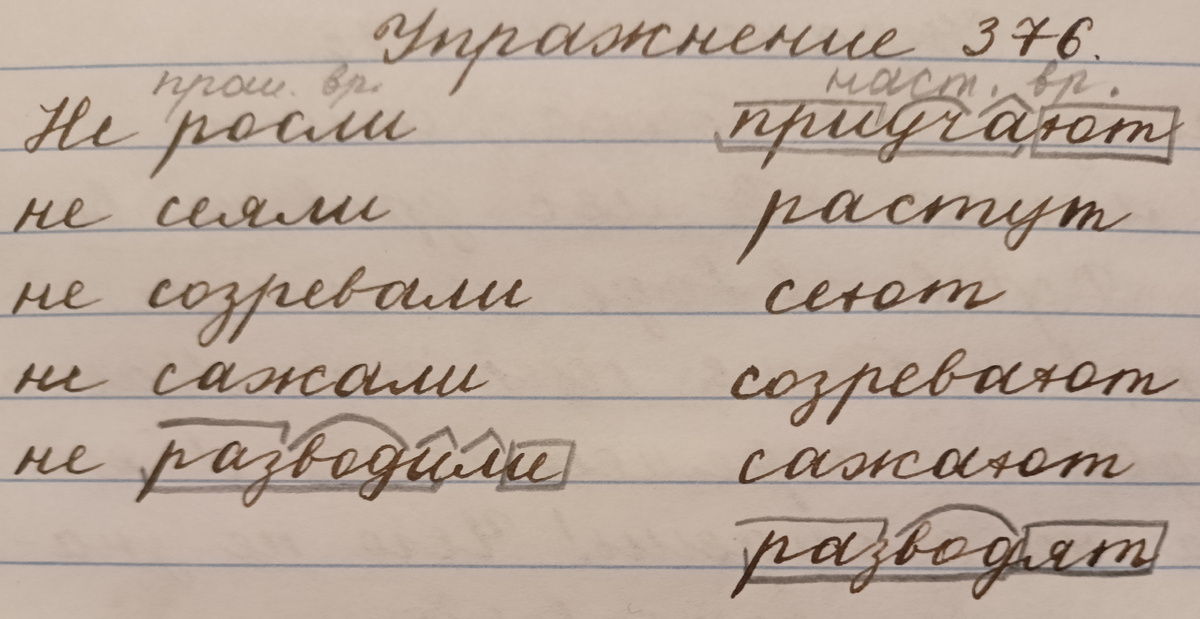 Упражнение 376.
прош. вр. наст. вр.
Не росли приучают
не сеяли растут
не созревали сеют
не сажали созревают
не разводили сажают
разводят